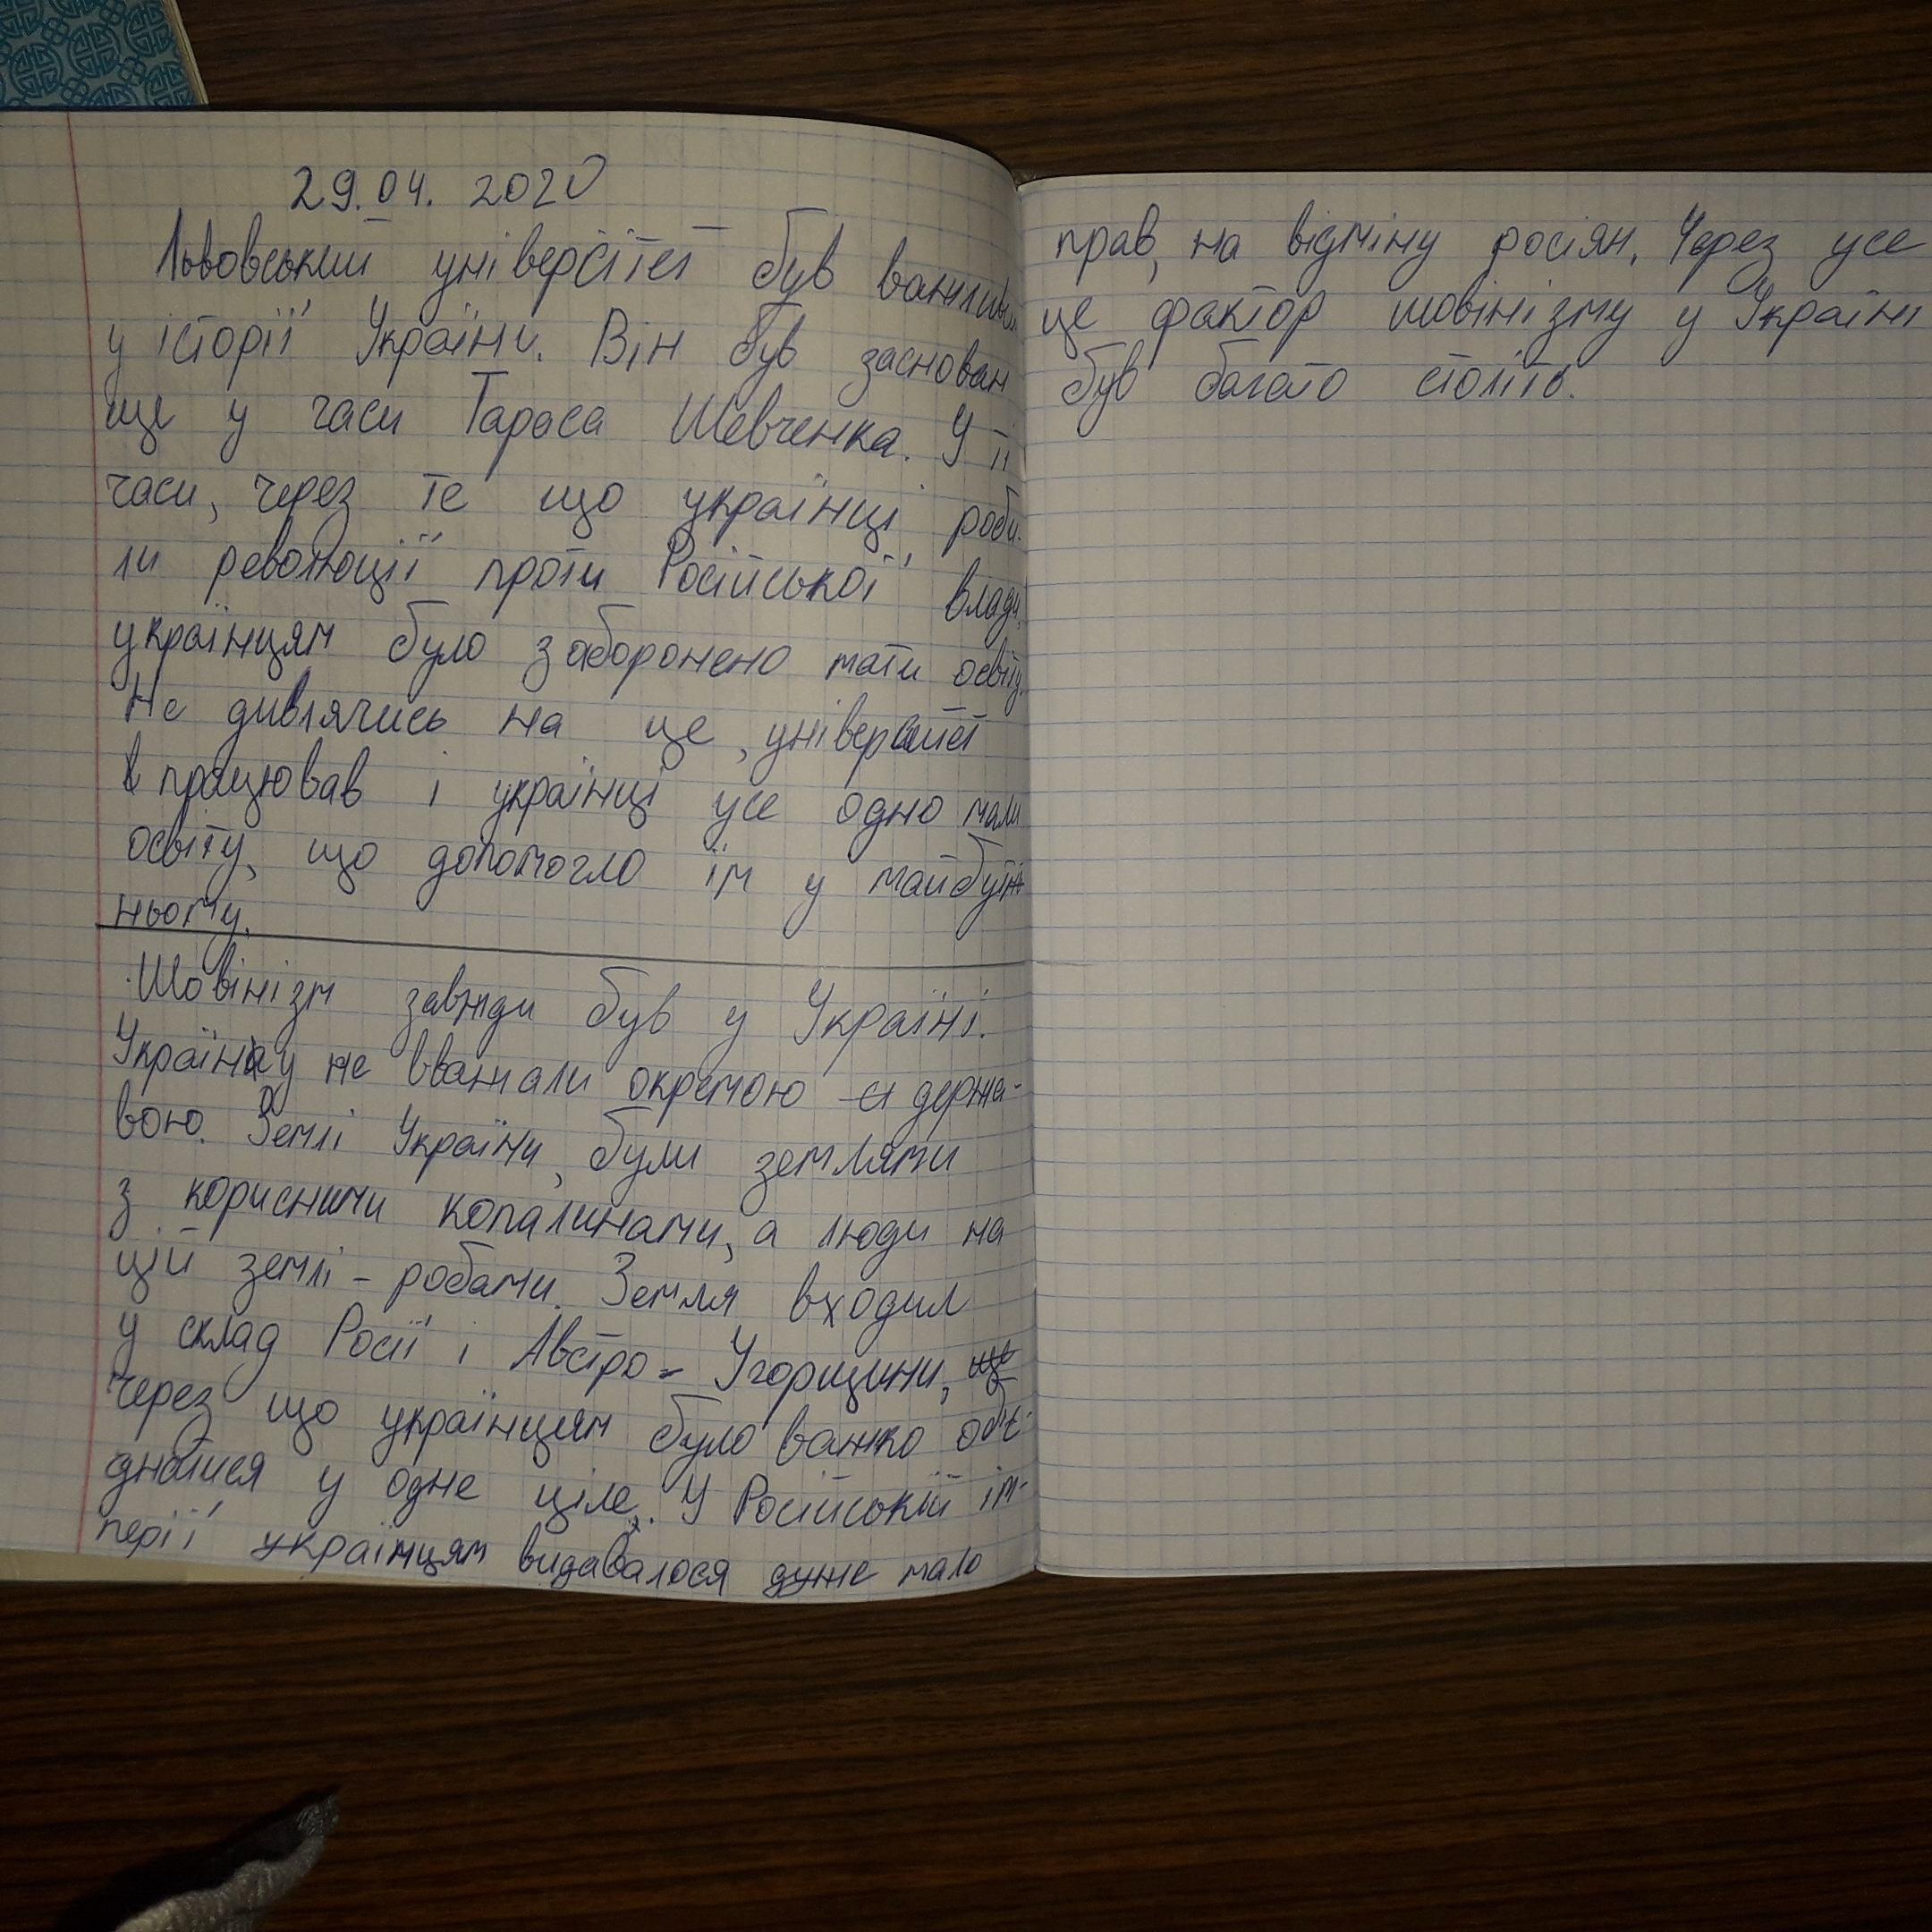 29.04.2020
Львовський універсітет був важливим
у історії України. Він був заснован
ще у часи Тараса Шевченка. У ті
часи, через те що українці, роби-
ли революції проти Російської влади,
українцям було заборонено мати освіту.
Не дивлячись на це, університет
працював і українці усе одно мали
освіту, що допомогло їм у майбут
ньому.
Шовінізм завжди був у Україні.
Україну не вважали окремою держа-
вою. Землі України, були землями
з корисними копалинами, а люди на
цій землі - робами. Земля входил
у склад Росії і Австро-Угорщини,
через що українцям було важко обʼє-
днатися у одне ціле. У Російській ім-
перії українцям видавалося дуже мало
прав, на відміну росіян. Через усе
це фактор шовінізму у Україні
був багато століть.